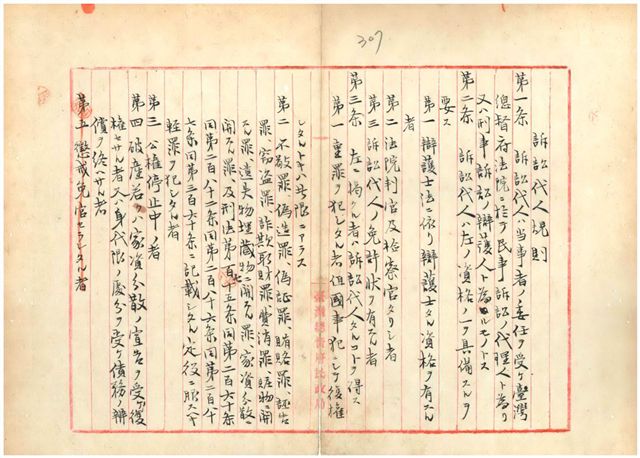 307
訴訟代人規則
第一条 訴訟代人ハ当事者ノ委任ヲ受ケ臺灣
總督府法院ニ於テ民事訴訟ノ代理人ト為リ
又ハ刑事訴訟ノ辯護人ト為ルモノトス
第二条 訴訟代人ハ左ノ資格ノ一ヲ具備スルヲ
要ス
第一 辯護士法ニ依リ辯護士タル資格ヲ有スル
者
第二 法院判官及檢察官タリシ者
第三 訴訟代人ノ免許状ヲ有スル者
第三条 左ニ掲クル者ハ訴訟代人タルコトヲ得ス
第一 重罪ヲ犯シタル者但國事犯ニシテ復權
シタルトキハ此限ニアラス
第二 不敬罪、偽造罪、偽証罪、賄賂罪、誣告
罪、窃盗罪、詐欺取財罪、費消罪、贓物ニ関
スル罪、遺失物埋藏物ニ関スル罪、家資分散ニ
関スル罪及刑法第百十五条同第二百六十条
同第二百八十二条同第二百八十六条同第二百八十
七条同第三百六十条ニ記載シタル定役ニ服スヘキ
軽罪ヲ犯シタル者
第三 公權停止中ノ者
第四 破産若クハ家資分散ノ宣告ヲ受ケ復
權セサル者又ハ身代限ノ處分ヲ受ケ債務ノ辨
償ヲ終ヘサル者
第五 懲戒免官セラレタル者
臺灣總督府民政局